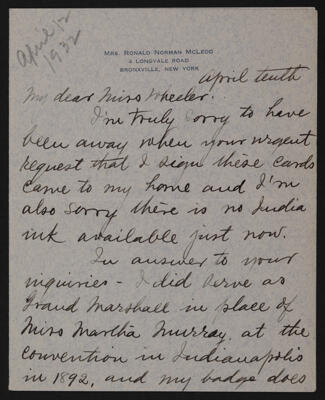 April 12
1932
MRS. RONALD NORMAN MCLEOD
4 LONGVALE ROAD
BRONXVILLE, NEW YORK
April tenth
My dear Miss Wheeler:
I'm truly sorry to have
been away when your urgent
request that I sign these cards
came to my home and I'm
also sorry there is no India
ink available just now.
In answer to your
inquiries - I did serve as
Grand Marshall in place of
Miss Martha Murray at the
convention in Indianapolis
in 1892, and my badge does